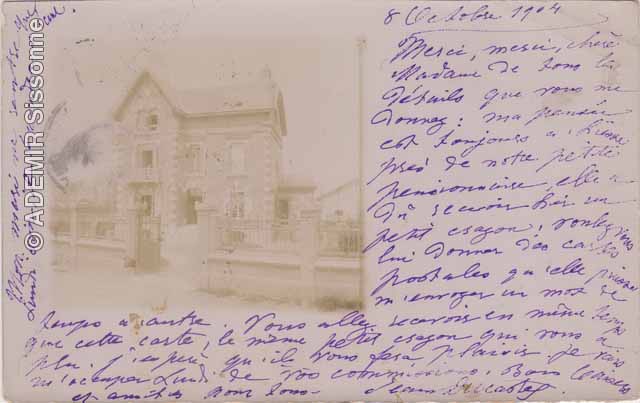 8 Octobre 1904
Merci, merci, chère
Madame de tous les
détails que vous me
donnez : ma pensée
est toujours à
près de notre petite
pensionnaire, elle a
dû recevoir hier un
petit crayon ; voulez vous
lui donner des cartes
postales qu'elle puisse
m'envoyer un mot de
temps à autre. Vous allez recevoir en même temps
que cette carte, le même petit crayon qui vous a
plu. J'espère qu'il vous fera plaisir je vais
m'occuper Lundi de vos commissions. Bons baisers
et amitiés pour tous.
Mon mari ne rentre que
Lundi
© ADEMIR Sissonne